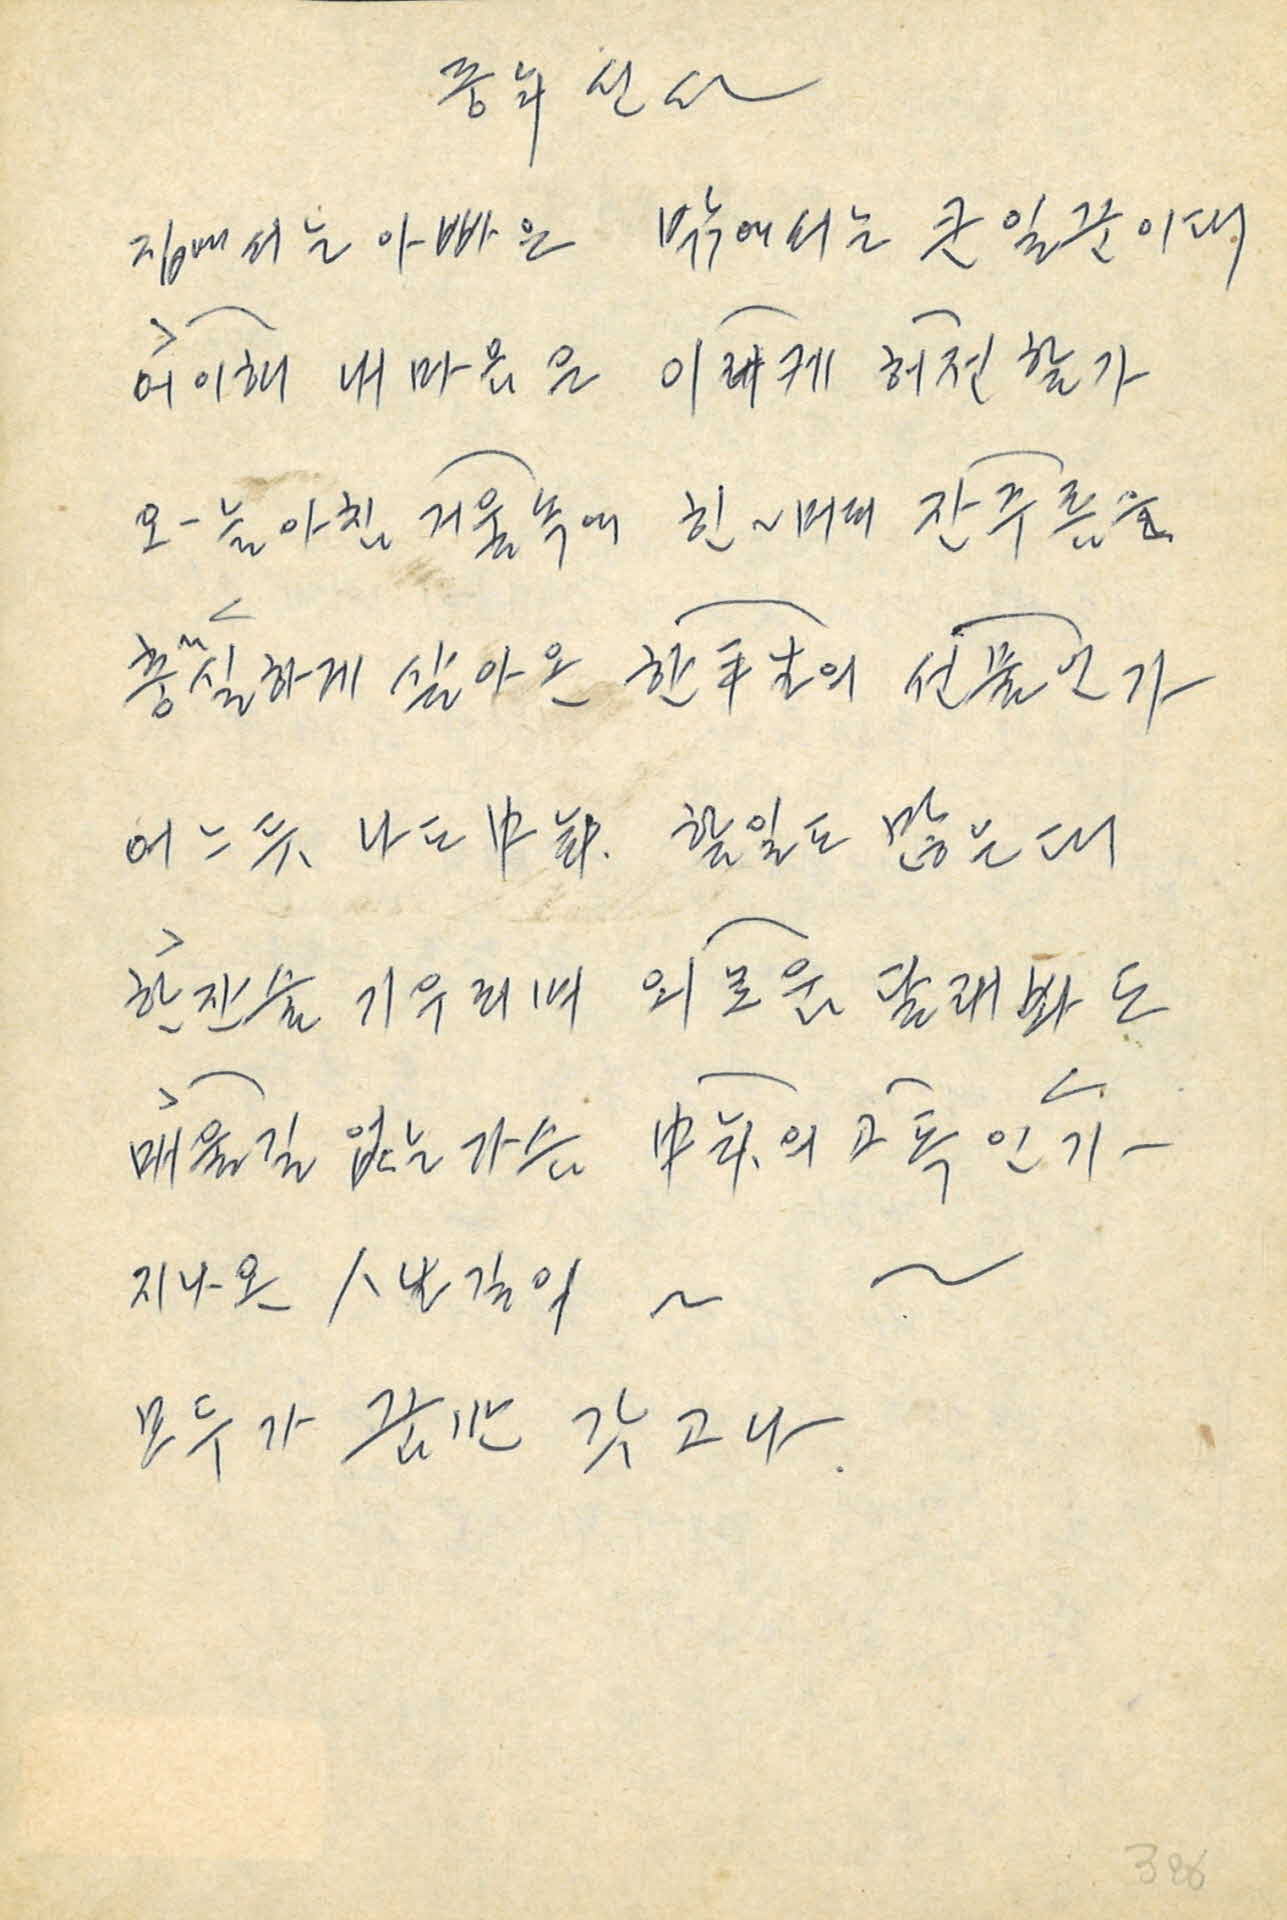 중년 신사
집에서는 아빠요 밖에서는 큰 일꾼인데
어이해 내 마음은 이렇게 허전할가
오-늘아침 거울속에 흰~머리 잔주름은
충실하게 살아온 한平生의 선물인가
어느듯 나도 中年. 할일도 많은데
한잔술 기우리며 외로움 달래봐도
메울길 없는 가슴 中年의 고독인가-
지나온 人生길이 ~ ~
모두가 꿈만 같고나.
386